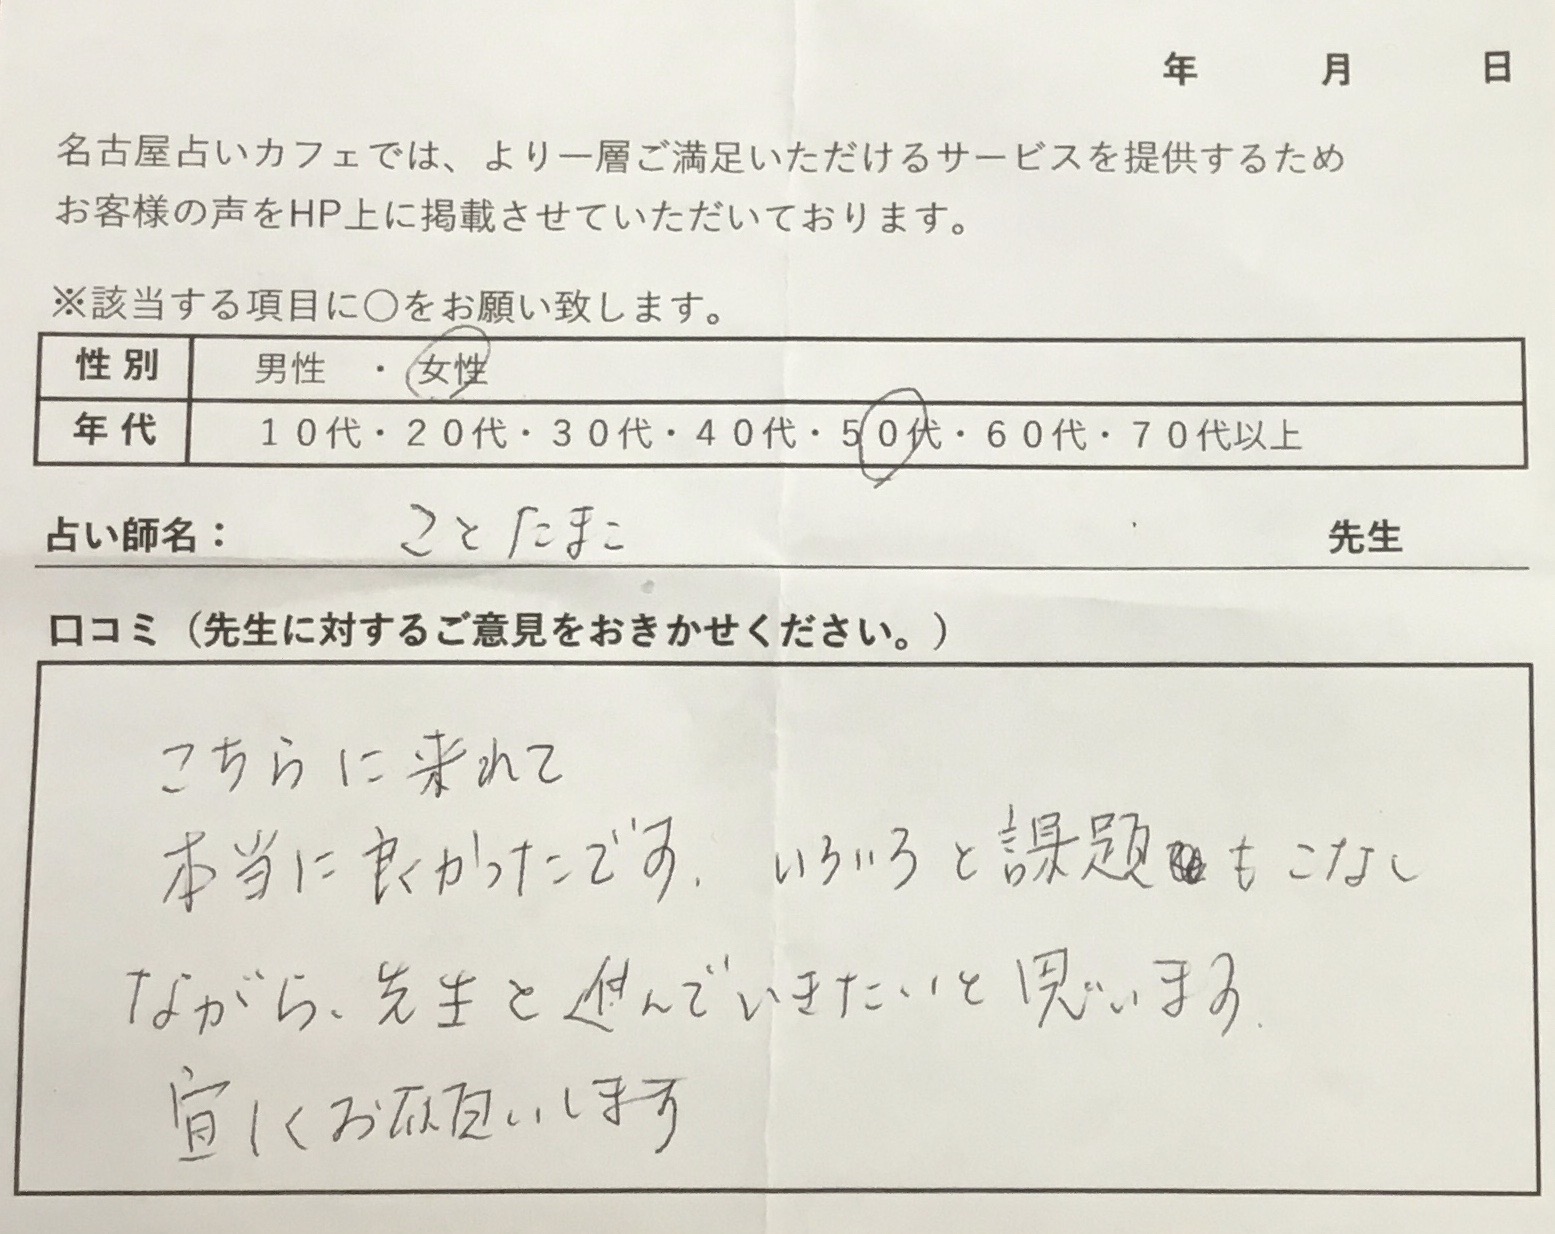 年 月 日
名古屋占いカフェでは、より一層ご満足いただけるサービスを提供するため
お客様の声をHP上に掲載させていただいております。
※該当する項目に○をお願い致します。
性別 男性 ・ 女性
年代 10代・20代・30代・40代・50代・60代・70代以上
占い師名： ことたまこ 先生
口コミ（先生に対するご意見をおきかせください。）
こちらに来れて
本当に良かったです. いろいろと課題もこなし
ながら、先生と進んでいきたいと思います.
宜しくお願いします